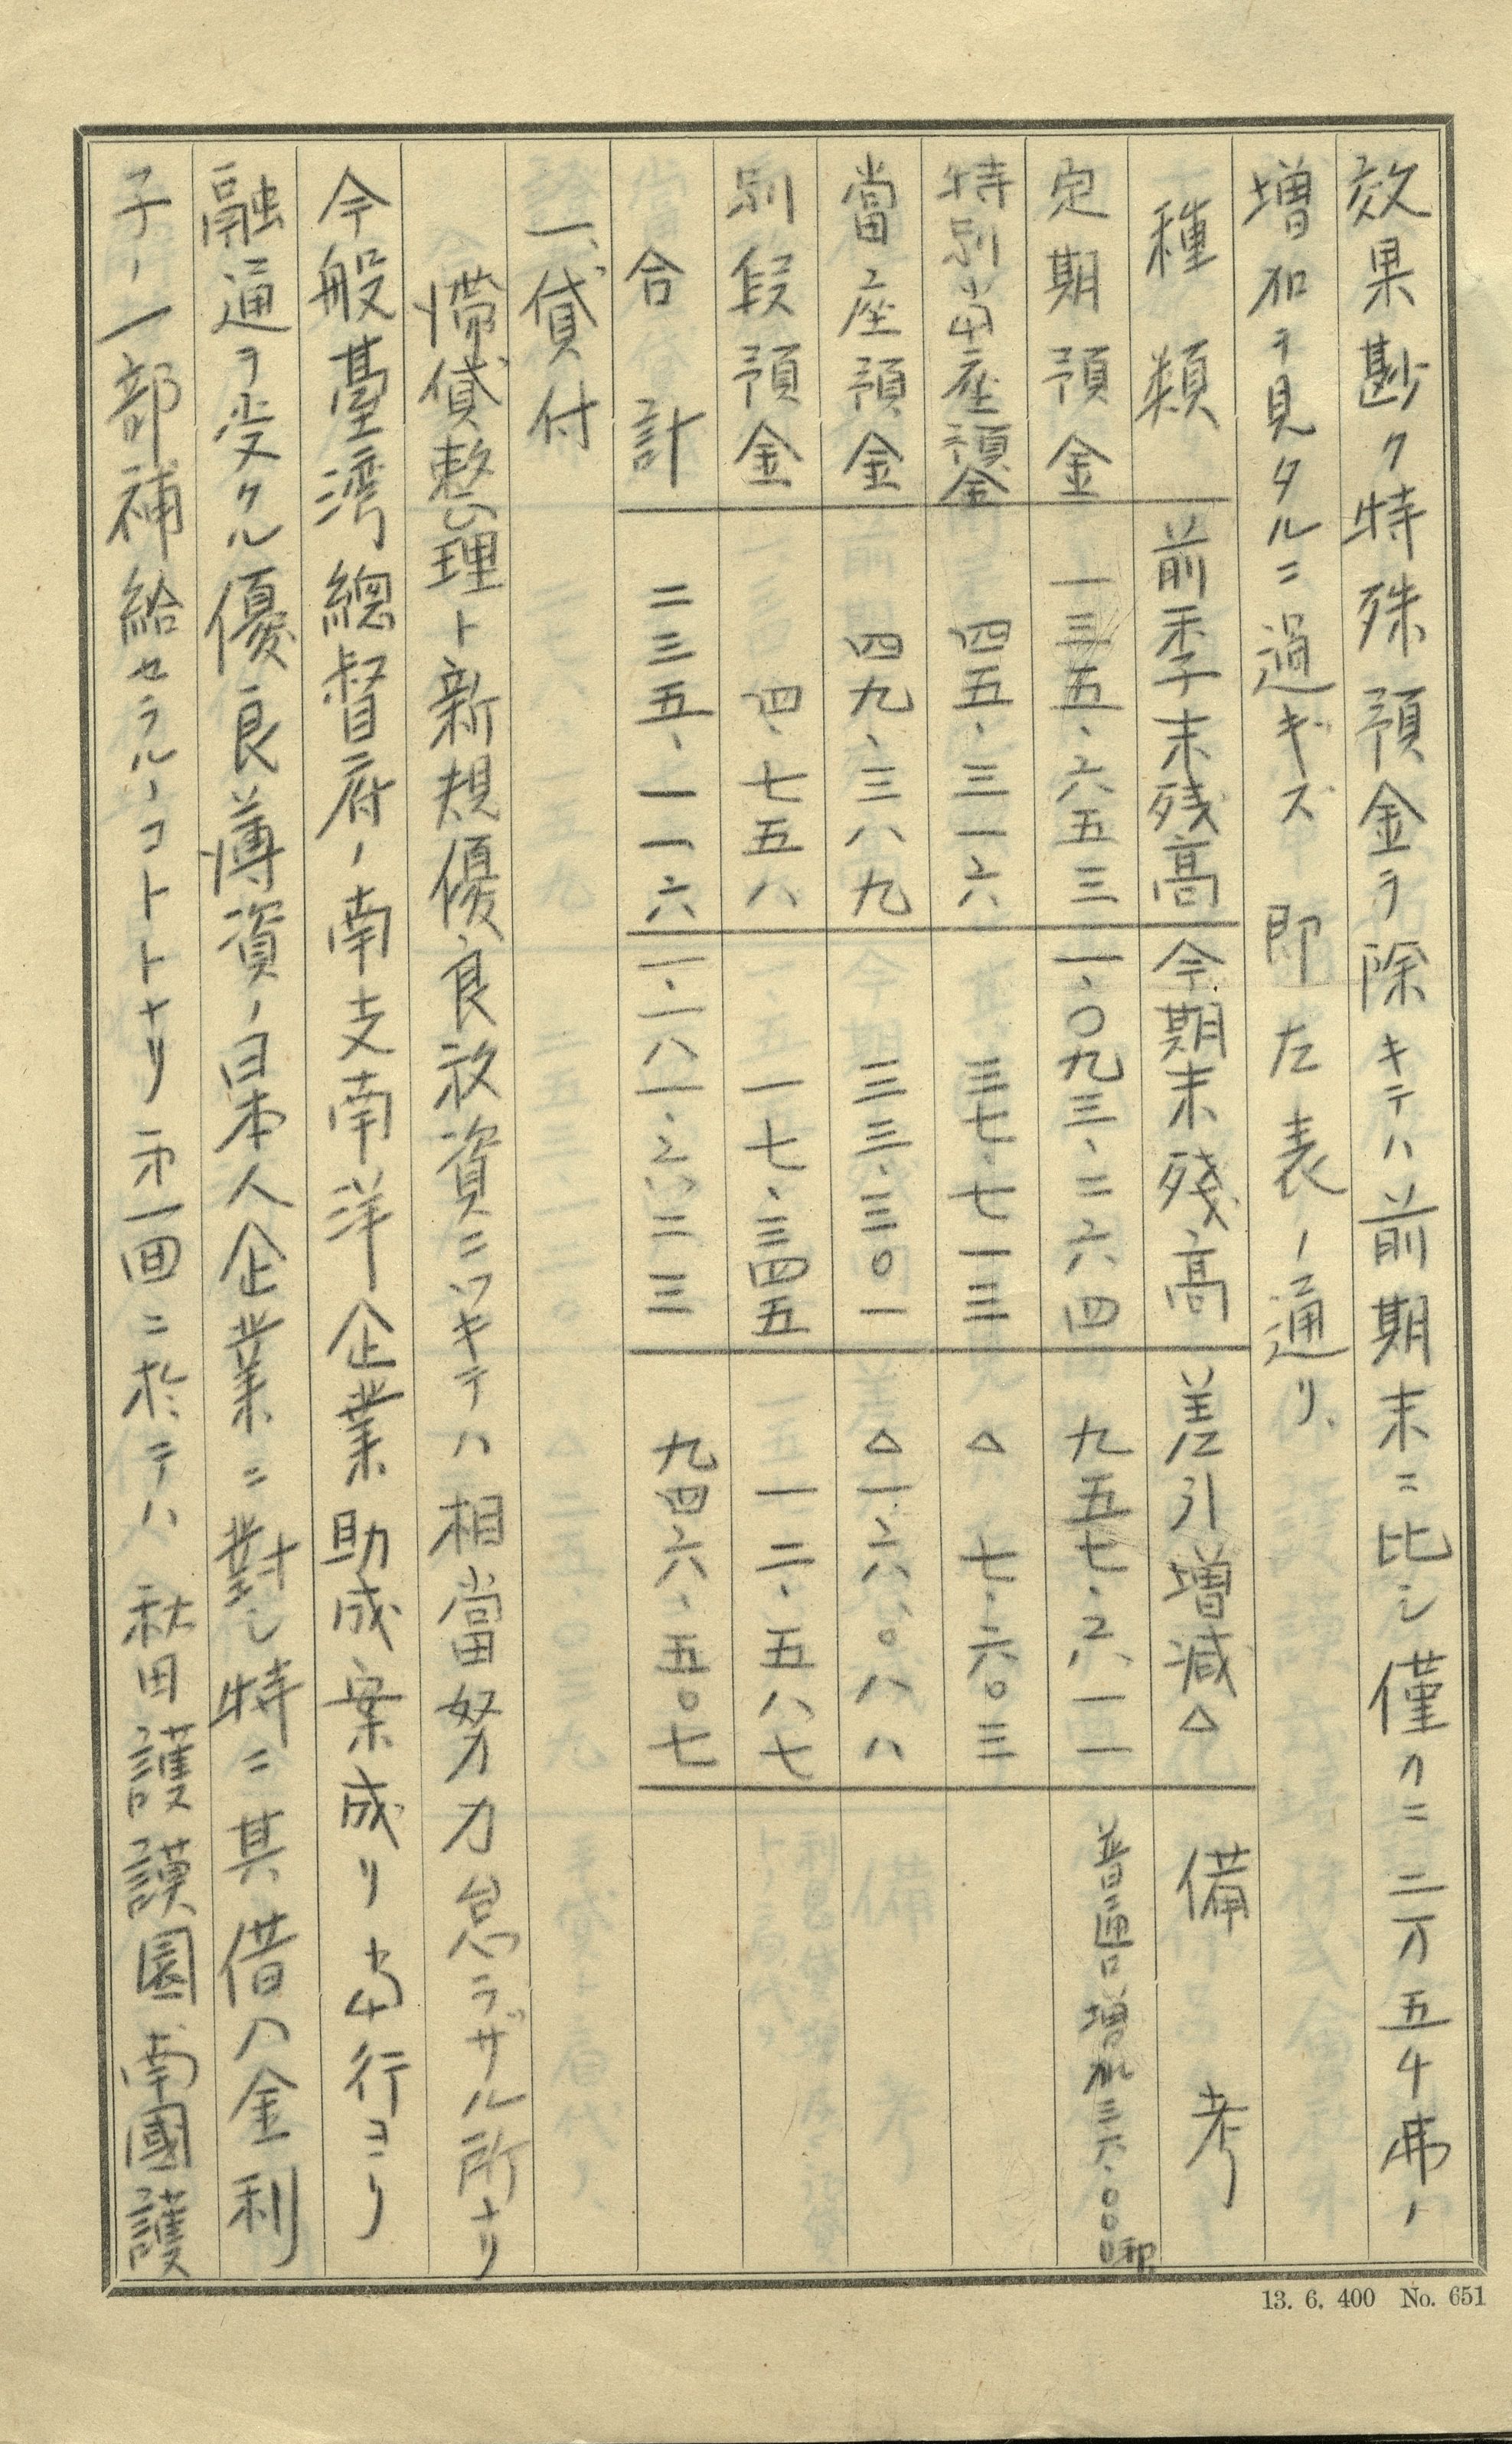 效果尠ク特殊預金ヲ除キテハ前期末ニ比シ僅カニ二万五千弗ノ
増加ヲ見タルニ過ギズ即左表ノ通リ、
種類 前季末残高 今期末残高 差引増減△ 備考
定期預金 一三五、六五三 一、〇九三、二六四 九五七、六一一 普通口増加三六、〇〇〇
特別当座預金 四五、三一六 三七、七一三 △七、六〇三
當座預金 四九、三八九 三三、三〇一 △一六、〇八八
別段預金 四、七五八 一七、三四五 一二、五八七
合計 二三五、一一六 一、一八一、六二三 九四六、五〇七
一、貸付
滯貸整理ト新規優良放資ニツキテハ相當努力怠ラザル所ナリ
今般臺湾總督府ノ南支南洋企業助成案成リ当行ヨリ
融通ヲ受クル優良薄資ノ日本人企業ニ對シ特ニ其借入金利
子ノ一部補給セラルヽコトトナリ第一回ニ於テハ秋田護謨園南國護
13. 6. 400 No. 651